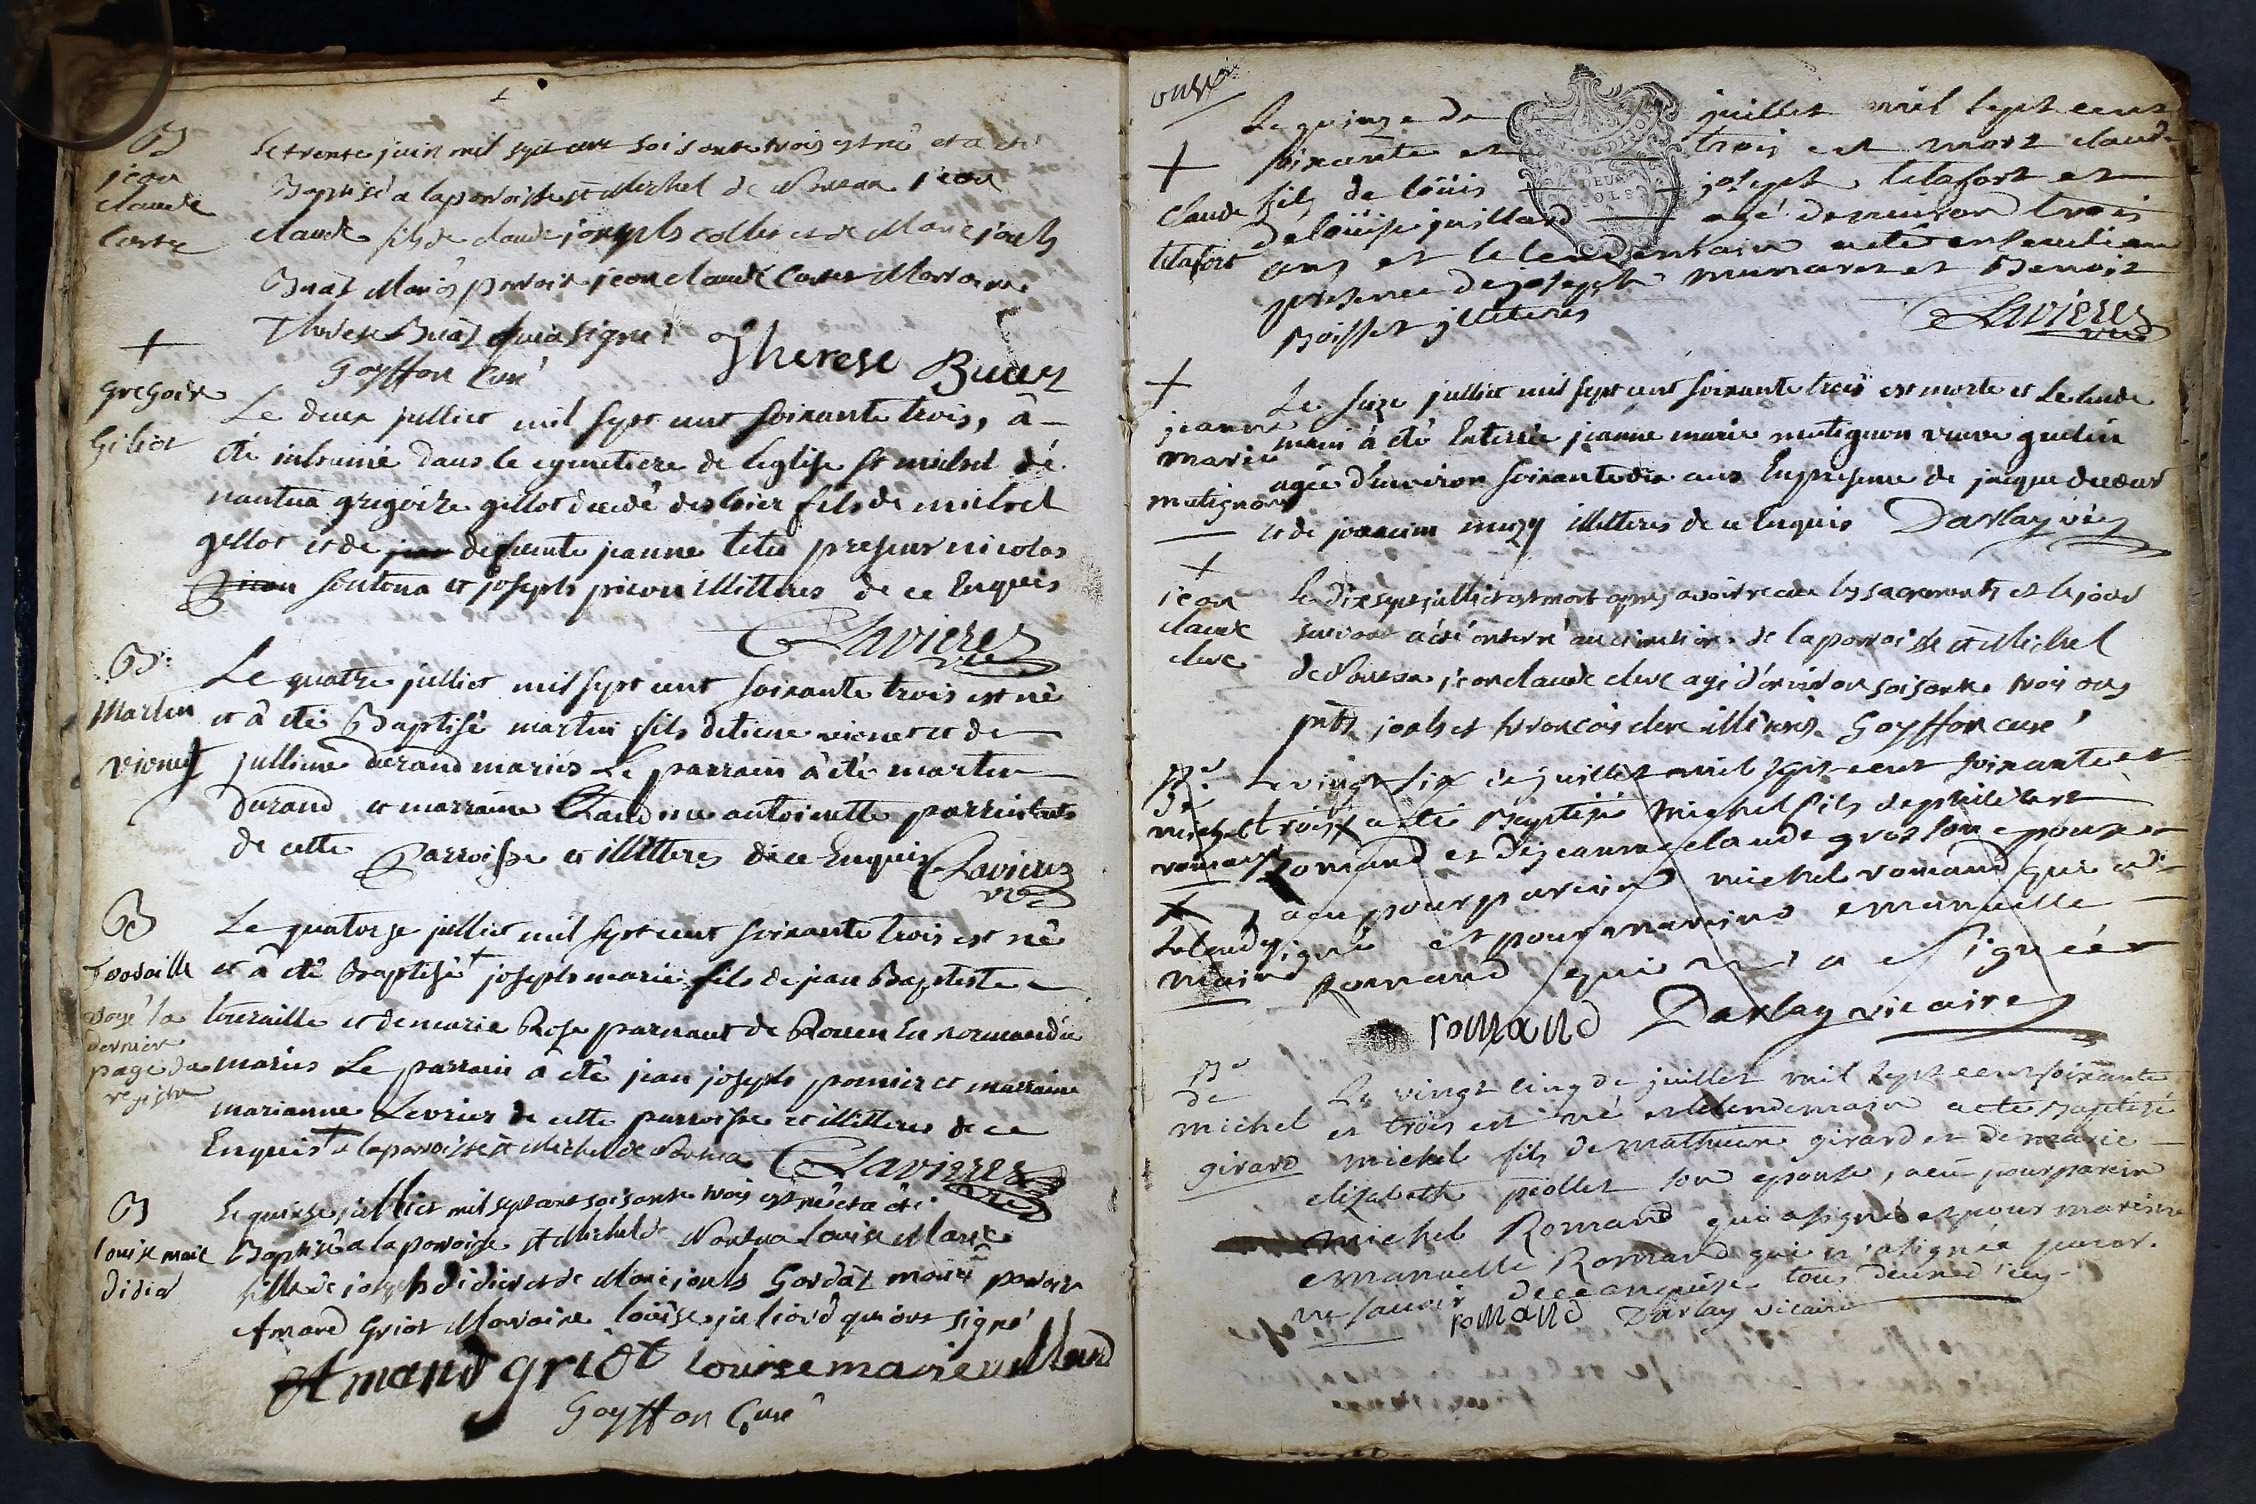 B
jean
claude
Le trente juin mil sept cent soisante trois est né et a été
Baptisé a la paroisse st Michel de Nantua jean
claude fils de claude joseph et de Marie joseph
Buat Mariés parrain jean claude Marraine
Therese Buat qui a signé
Therese Buat
Goyffon Curé
+
gregoire
Gilliot
Le deux jullict mil sept cent soixante trois, à
été inhumé dans le cymetiere de leglise st michel de
nantua grégoire gillot décédé des hier fils de michel
gillot et de defeunte jeanne présent nicolas
et joseph illitteres de ce Enquis
Lavieres
vic
B
Martin
vionet
Le quatre jullict mil sept cent soixante trois est né
et à été Baptisé martin fils detiene vionet et de
jullienne durand mariés Le parrain à été martin
durand et marraine Claudine antoinette
de cette Parroisse et illitteres de ce Enquis Lavieres
vic
B
Touraille
voyé la
dernier
page du
registre
Le quatorze jullict mil sept cent soixante trois est né
et à été Baptisé + joseph marie fils de jean Baptiste
touraille et de marie Rose parnant de Rouen En normandie
mariés Le parrain à été jean joseph pomier et marraine
marianne Levrier de cette parroisse et illitteres de ce
Enquis + a la paroisse st Michel de Nantua Lavieres
vic
B
louise marie
didier
Le quinze jullict mil sept cent soisante trois est née et a été
Baptisée a la paroisse st Michel de Nantua Louise Marie
fille de joseph didier et de Marie joseph Gordat mariés parrain
Amand Griot Marraine louise qui ont signé
Amand griot louise marie
Goyffon Curé
onze
+
Claude
Le quinze de juillet mil sept cent
soixante et trois est mort claude
fils de loüis joseph et
de loüise juillard agé denviron trois
ans et le lendemain a été enseveli en
presence de joseph et Benoit
illiteres
Lavieres
vic
+
jeanne
marie
matignon
Le seize jullict mil sept cent soixante trois est morte et Le lende
main à été Enterrée jeanne marie matignon veuve
agée d'Environ soixante dix ans En presence de jacque
et de illitteres de ce Enquis Darlay vic
+
jean
claude
clerc
Le dix sept jullict est mort apres avoir recu les sacrements et le jour
suivant a été enterré au cimetiere de la paroisse st Michel
de Nantua jean claude clerc agé d'environ soisante trois ans
pnts joseph et françois clerc illiterés Goyffon curé
Be
de
michel
romand
Le vingt six de juillet mil sept cent soixante et
trois a été Baptisé Michel fils de philibert
Romand et de jeanne claude gros son epouse
a eu pour parain michel romand qui a
signé et pour maraine emanuelle
Romand qui n'a signée
+
Le lende
main
romand Darlay vicaire
Be
de
michel
girard
Le vingt cinq de juillet mil sept cent soixante
et trois est né et le lendemain a été Baptisé
michel fils de mathieu girard et de marie
elizabeth son epouse, a eu pour parain
michel Romand qui a signé et pour maraine
emanuelle Romand qui n'a signée pour
ne savoir de ce enquise
romand Darlay vicaire